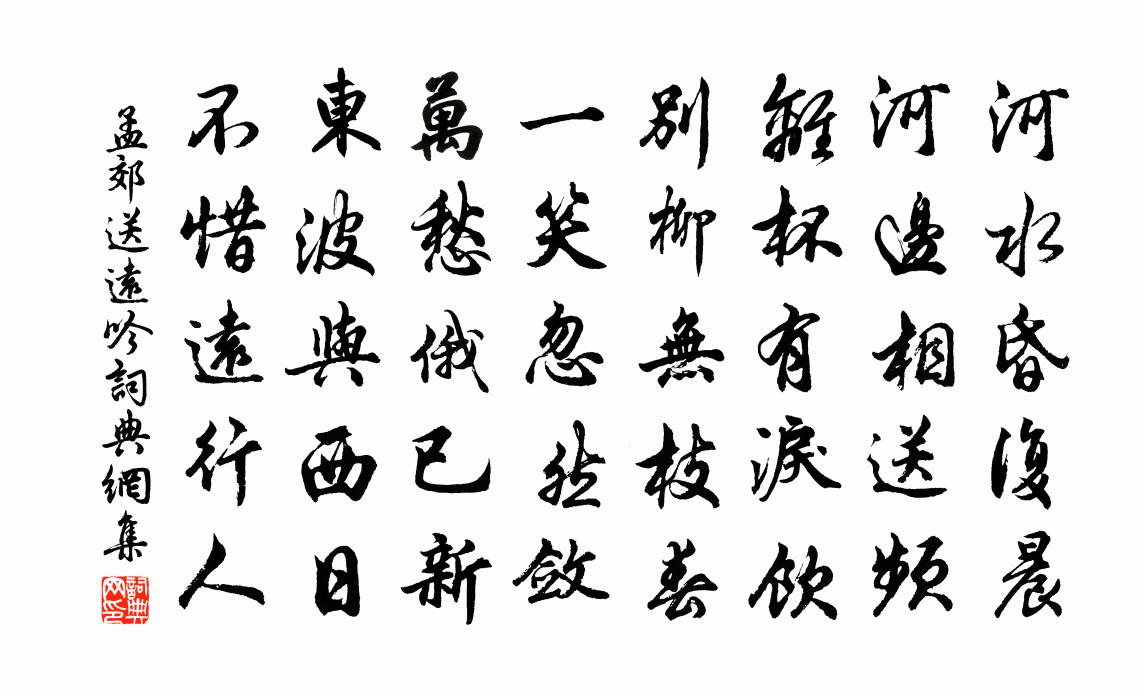 河水昏復晨
河邊相送頻
離杯有淚飲
別柳無枝春
一笑忽然斂
萬愁俄已新
東波與西日
不惜遠行人
孟郊送遠吟詞典網集
詞典網印